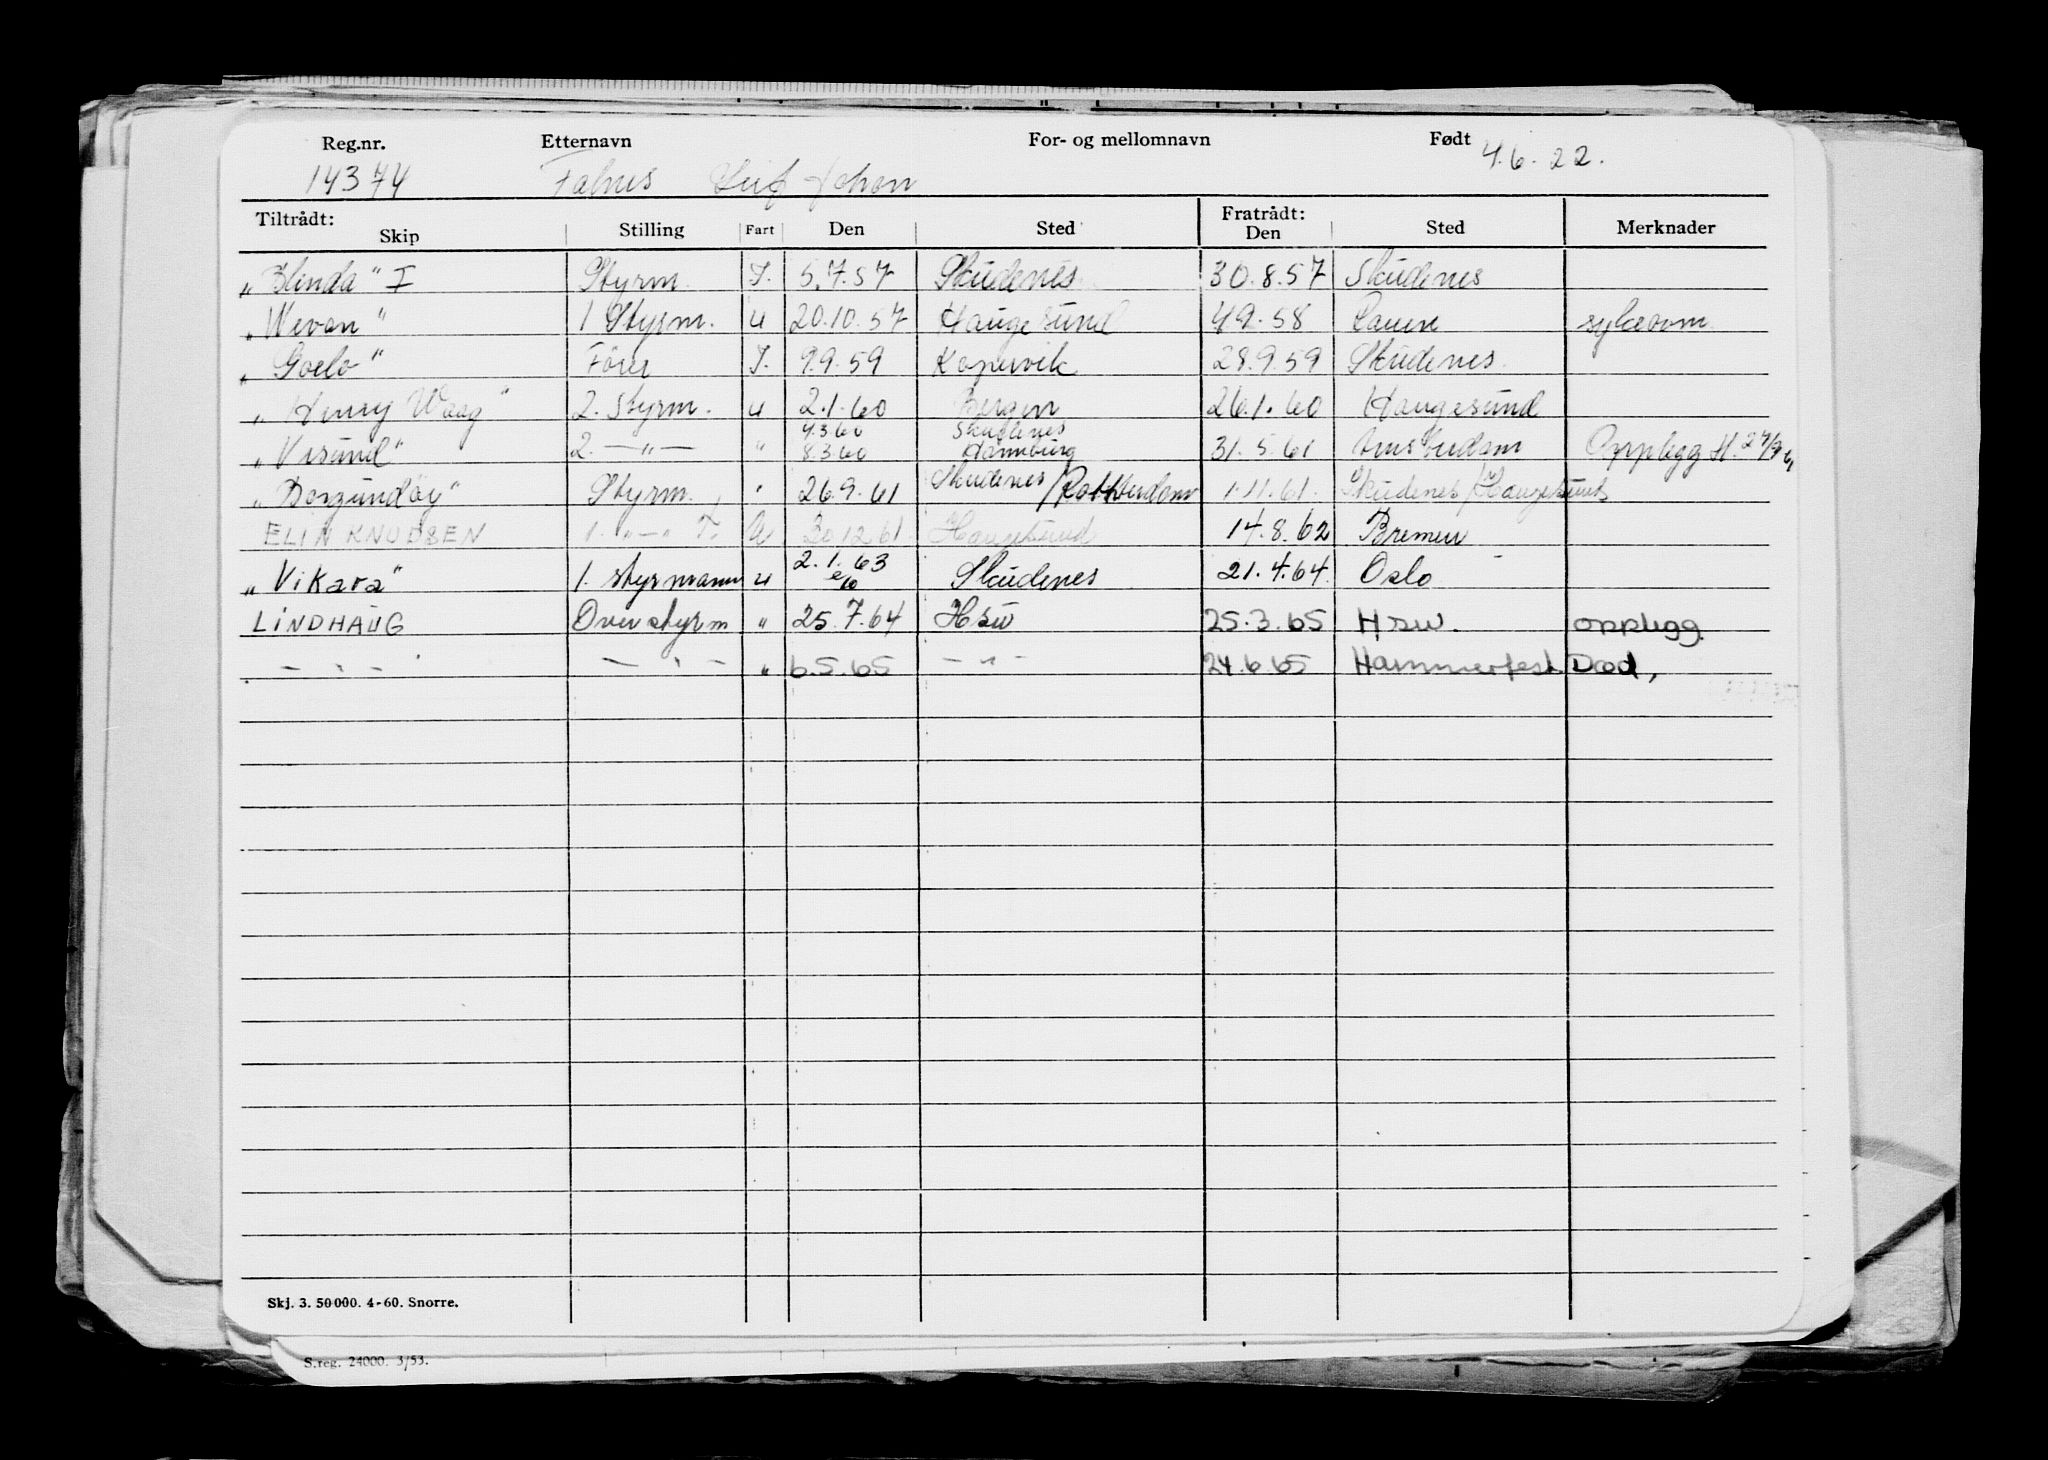 Reg.nr. Etternavn For- og mellomnavn Født 4.6.22.
14374 Falnes Leif Johan
Tiltrådt: Skip Stilling Fart Den Sted Fratrådt: Den Sted Merknader
„Blinda" I Styrm. I. 5.7.57 Skudenes 30.8.57 Skudenes
„Wevan" 1 Styrm. u 20.10.57 Haugesund 4.9.58 Rouen
„Goelo" Fører I. 9.9.59 Kopervik 28.9.59 Skudenes
„Henry Waag" 2. styrm. u 2.1.60 Bergen 26.1.60 Haugesund
4.3.60 Skudenes
„Visund" 2. —„— „ 8.3.60 Hamburg 31.5.61 Amsterdam Opplegg
„Borgundöy" Styrm. „ 26.9.61 Skudenes/Rotterdam 1.11.61. Skudenes/Haugesund
ELIN KNUDSEN 1. —„— T. u 30.12.61 Haugesund 14.8.62 Bremen
„Vikara" 1. styrmann u 2.1.63 Skudenes 21.4.64. Oslo
LINDHAUG Overstyrm „ 25.7.64 Hsu 25.3.65 Hsu. opplegg
— „ — — „ — „ 6.5.65 — „ — 24.6.65 Hammerfest Død,
Skj. 3. 50000. 4-60. Snorre.
S.reg. 24000. 3/53.